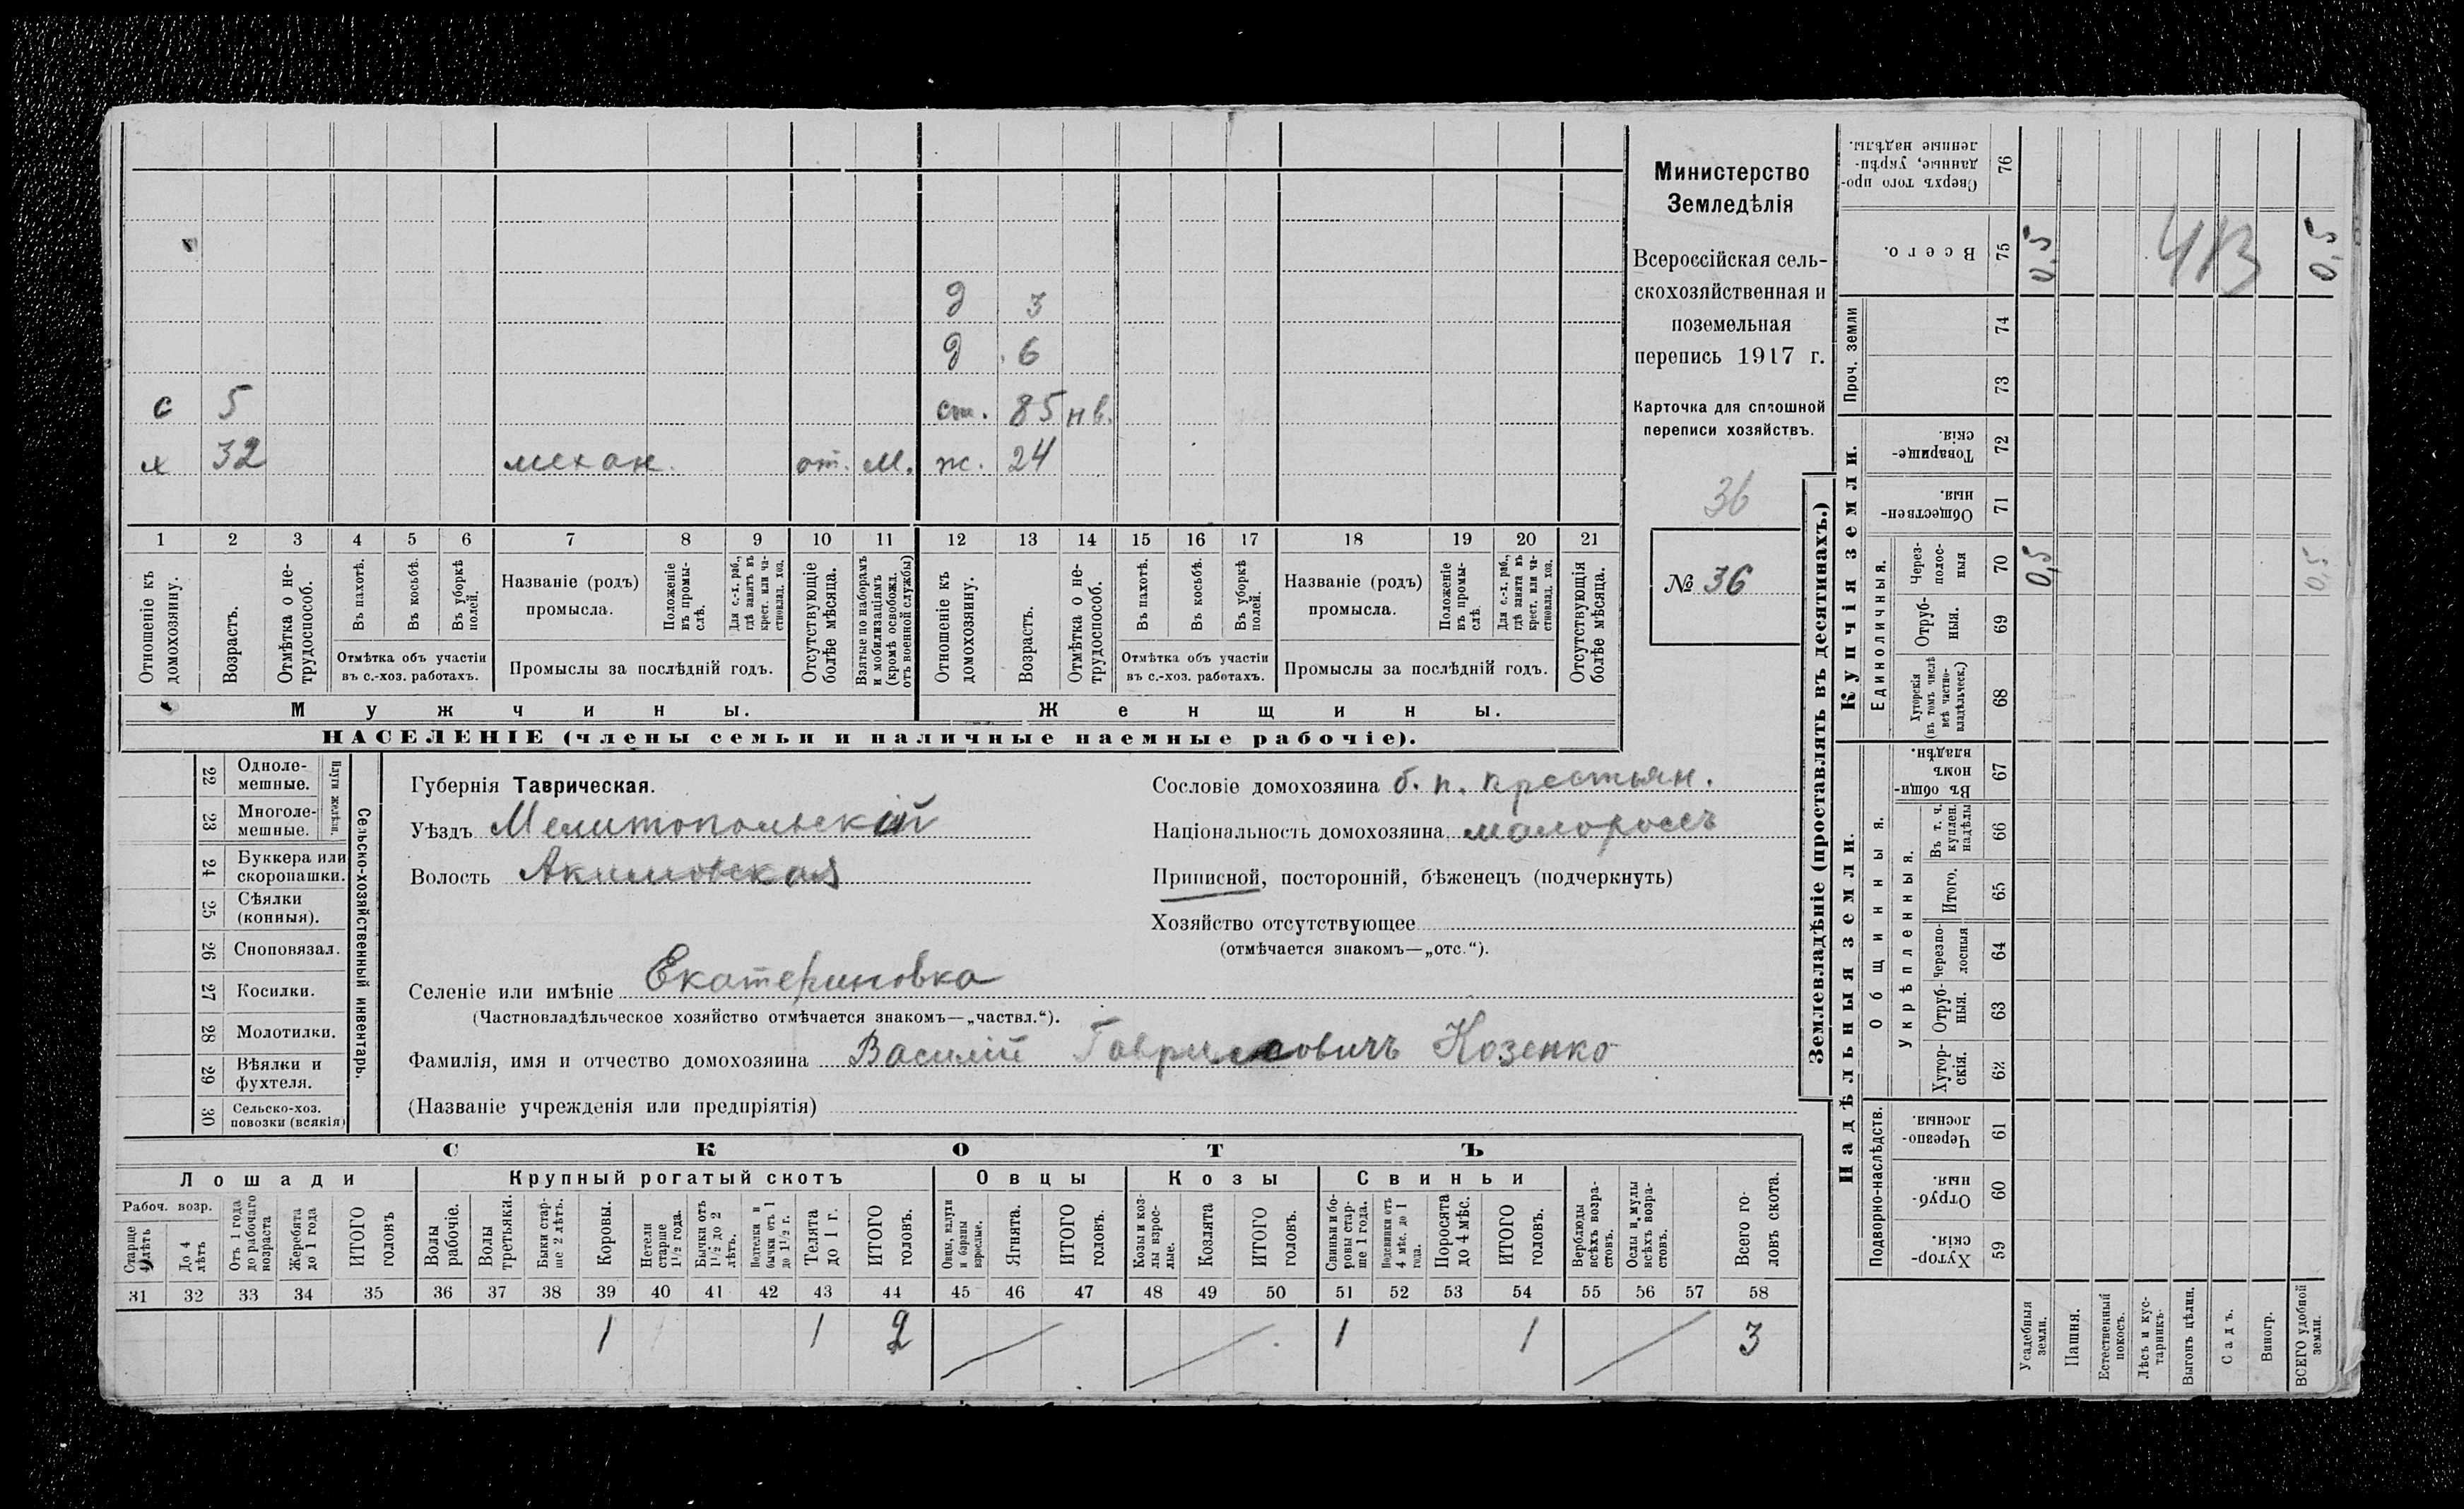 Министерство
Земледѣлія
Всероссійская сель-
скохозяйственная и
поземельная
перепись 1917 г.
Карточка для сплошной
переписи хозяйствъ.
36
№ 36
д 3
д 6
с 5 ст. 85 нв.
х 32 механ. от. м. ж. 24
1 2 3 4 5 6 7 8 9 10 11 12 13 14 15 16 17 18 19 20 21
Отношеніе къ домохозяину.
Возрастъ.
Отмѣтка о не-трудоспособ.
Въ пахотѣ.
Въ косьбѣ.
Въ уборкѣ полей.
Отмѣтка объ участіи
въ с.-хоз. работахъ.
Названіе (родъ)
промысла.
Положеніе въ промы-слѣ.
Для с.-х. раб., гдѣ занятъ въ крест. или ча-стновлад. хоз.
Промыслы за послѣдній годъ.
Отсутствующіе болѣе мѣсяца.
Взятые по наборамъ и мобилизаціямъ (кромѣ освобожд. отъ военной службы)
Отношеніе къ домохозяину.
Возрастъ.
Отмѣтка о не-трудоспособ.
Въ пахотѣ.
Въ косьбѣ.
Въ уборкѣ полей.
Отмѣтка объ участіи
въ с.-хоз. работахъ.
Названіе (родъ)
промысла.
Положеніе въ промы-слѣ.
Для с.-х. раб., гдѣ занята въ крест. или ча-стновлад. хоз.
Промыслы за послѣдній годъ.
Отсутствующія болѣе мѣсяца.
Мужчины.
Женщины.
НАСЕЛЕНІЕ (члены семьи и наличные наемные рабочіе).
22 Одноле-мешные.
23 Многоле-мешные.
Плуги желѣзн.
24 Буккера или скоропашки.
25 Сѣялки (конныя).
26 Сноповязал.
27 Косилки.
28 Молотилки.
29 Вѣялки и фухтеля.
30 Сельско-хоз. повозки (всякія)
Сельско-хозяйственный инвентарь.
Губернія Таврическая.
Уѣздъ Мелитопольскій
Волость Акимовская
Сословіе домохозяина б. п. крестьян.
Національность домохозяина малороссъ
Приписной, посторонній, бѣженецъ (подчеркнуть)
Хозяйство отсутствующее
(отмѣчается знакомъ—„отс.“).
Селеніе или имѣніе Екатериновка
(Частновладѣльческое хозяйство отмѣчается знакомъ—„частвл.“).
Фамилія, имя и отчество домохозяина Василій Гавриловичъ Козенко
(Названіе учрежденія или предпріятія)
СКОТЪ
Лошади
Рабоч. возр.
Старше 4 лѣтъ
До 4 лѣтъ
Отъ 1 года до рабочаго возраста
Жеребята до 1 года
ИТОГО головъ
Крупный рогатый скотъ
Волы рабочіе.
Волы третьяки.
Быки стар-ше 2 лѣтъ.
Коровы.
Нетели старше 1½ года.
Бычки отъ 1½ до 2 лѣтъ.
Подтелки и бычки отъ 1 до 1½ г.
Телята до 1 г.
ИТОГО головъ.
Овцы
Овцы, валухи и бараны взрослые.
Ягнята.
ИТОГО головъ.
Козы
Козы и коз-лы взрос-лые.
Козлята
ИТОГО головъ.
Свиньи
Свиньи и бо-ровы стар-ше 1 года.
Подсвинки отъ 4 мѣс. до 1 года.
Поросята до 4 мѣс.
ИТОГО головъ.
Верблюды всѣхъ возра-стовъ.
Ослы и мулы всѣхъ возра-стовъ.
Всего го-ловъ скота.
31 32 33 34 35 36 37 38 39 40 41 42 43 44 45 46 47 48 49 50 51 52 53 54 55 56 57 58
1 1 2 1 1 3
Землевладѣніе (проставлять въ десятинахъ.)
Надѣльныя земли.
Подворно-наслѣдств.
Хутор-скія. 59
Отруб-ныя. 60
Черезпо-лосныя. 61
Общинныя.
Укрѣпленныя.
Хутор-скія. 62
Отруб-ныя. 63
Черезпо-лосныя 64
Итого. 65
Въ т. ч. куплен. надѣлы 66
Въ общи-номъ владѣн. 67
Купчія земли.
Единоличныя.
Хуторскія (въ томъ числѣ всѣ частно-владѣльческ.) 68
Отруб-ныя. 69
Через-полос-ныя 70 0,5 0,5
Обществен-ныя. 71
Товарище-скія. 72
Проч. земли
73
74
Всего. 75 0,5 0,5
Сверхъ того про-данные, укрѣп-ленные надѣлы. 76
Усадебныя земли.
Пашня.
Естественный покосъ.
Лѣсъ и кус-тарникъ.
Выгонъ цѣлин.
Садъ.
Виногр.
ВСЕГО удобной земли.